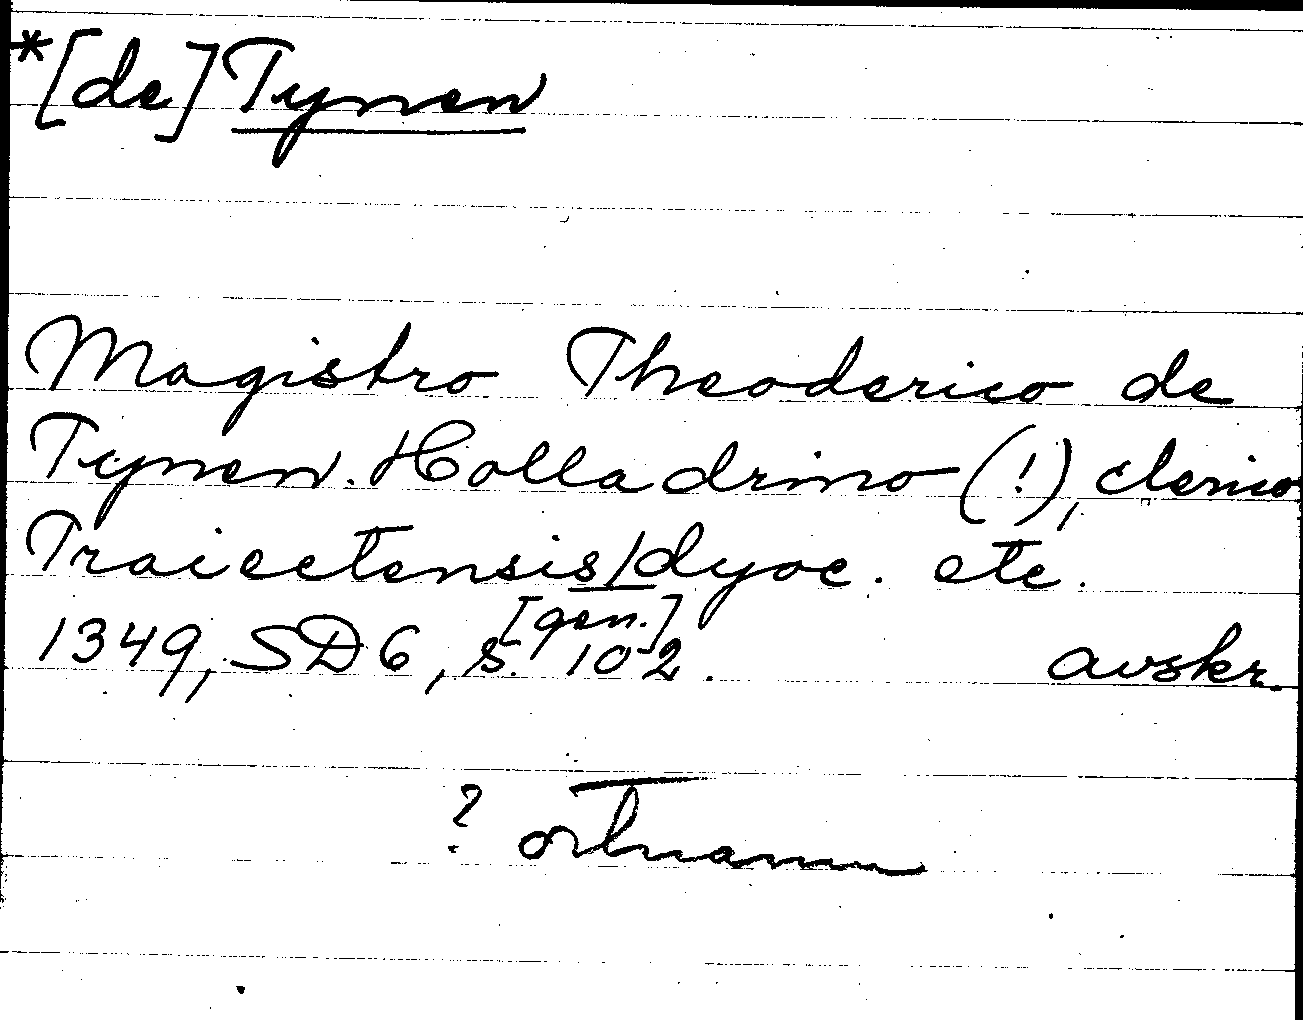 *[de] Tynen
Magistro Theoderico de
Tynen. Holladrino (!), clerico
Traiectensis/dyoc. etc.
[gen.]
1349, SD 6, s. 102. avskr.
? ortnamn